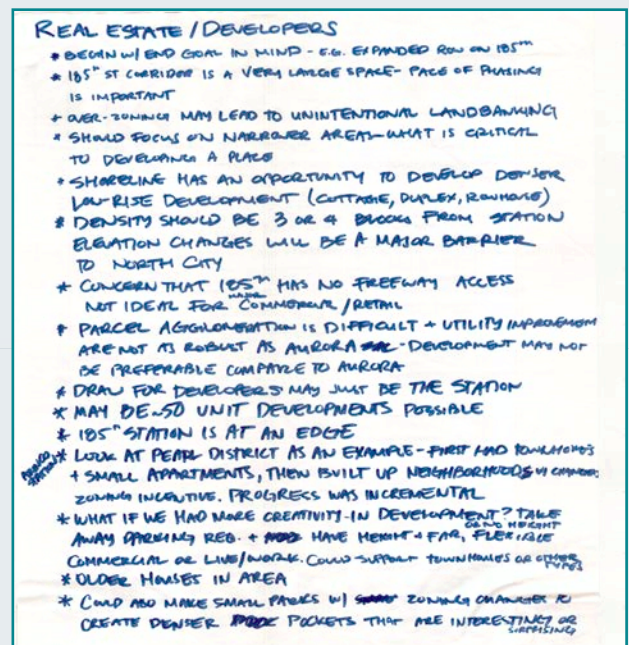 REAL ESTATE / DEVELOPERS
* BEGIN W/ END GOAL IN MIND - E.G. EXPANDED ROW ON 185TH
* 185TH ST CORRIDOR IS A VERY LARGE SPACE - PACE OF PHASING
IS IMPORTANT
* OVER-ZONING MAY LEAD TO UNINTENTIONAL LANDBANKING
* SHOULD FOCUS ON NARROWER AREAS - WHAT IS CRITICAL
TO DEVELOPING A PLACE
* SHORELINE HAS AN OPPORTUNITY TO DEVELOP DENSER
LOW-RISE DEVELOPMENT (COTTAGE, DUPLEX, ROWHOUSE)
* DENSITY SHOULD BE 3 OR 4 BLOCKS FROM STATION
ELEVATION CHANGES WILL BE A MAJOR BARRIER
TO NORTH CITY
* CONCERN THAT 185TH HAS NO FREEWAY ACCESS
NOT IDEAL FOR MAJOR COMMERCIAL / RETAIL
* PARCEL AGGLOMERATION IS DIFFICULT + UTILITY IMPROVEMENT
ARE NOT AS ROBUST AS AURORA - DEVELOPMENT MAY NOT
BE PREFERABLE COMPARE TO AURORA
* DRAW FOR DEVELOPERS MAY JUST BE THE STATION
* MAY BE ~50 UNIT DEVELOPMENTS POSSIBLE
* 185TH STATION IS AT AN EDGE
AROUND STATION
* LOOK AT PEARL DISTRICT AS AN EXAMPLE - FIRST HAD TOWNHOMES
+ SMALL APARTMENTS, THEN BUILT UP NEIGHBORHOODS W/ CHANGES
ZONING INCENTIVE. PROGRESS WAS INCREMENTAL
* WHAT IF WE HAD MORE CREATIVITY IN DEVELOPMENT? TAKE
AWAY PARKING REQ. + HAVE HEIGHT + FAR, OR NO HEIGHT FLEXIBLE
COMMERCIAL OR LIVE/WORK. COULD SUPPORT TOWNHOUSES OR OTHER TYPES
* OLDER HOUSES IN AREA
* COULD ALSO MAKE SMALL PARKS W/ ZONING CHANGES TO
CREATE DENSER POCKETS THAT ARE INTERESTING OR SURPRISING